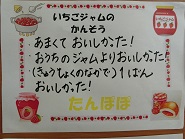 いちごジャムの
かんそう
あまくて おいしかった!
おうちのジャムよりおいしかった!
(きゅうしょくのなかで)1ばん
おいしかった!
たんぽぽ